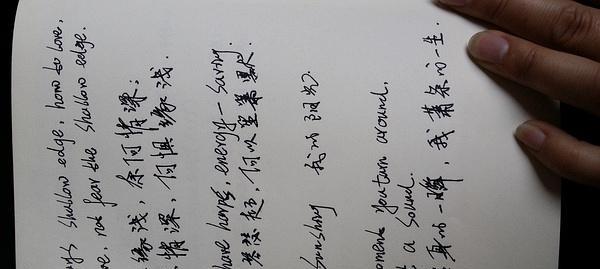 shallow edge, how to love,
not fear the shallow edge.
缘浅,奈何情深;
情深,何惧缘浅.
have energy-saving.
琴瑟起,何以笙箫默.
Sunshiny 我的阳光.
you turn around,
a sound.
身的一瞬,我萧条的一生.